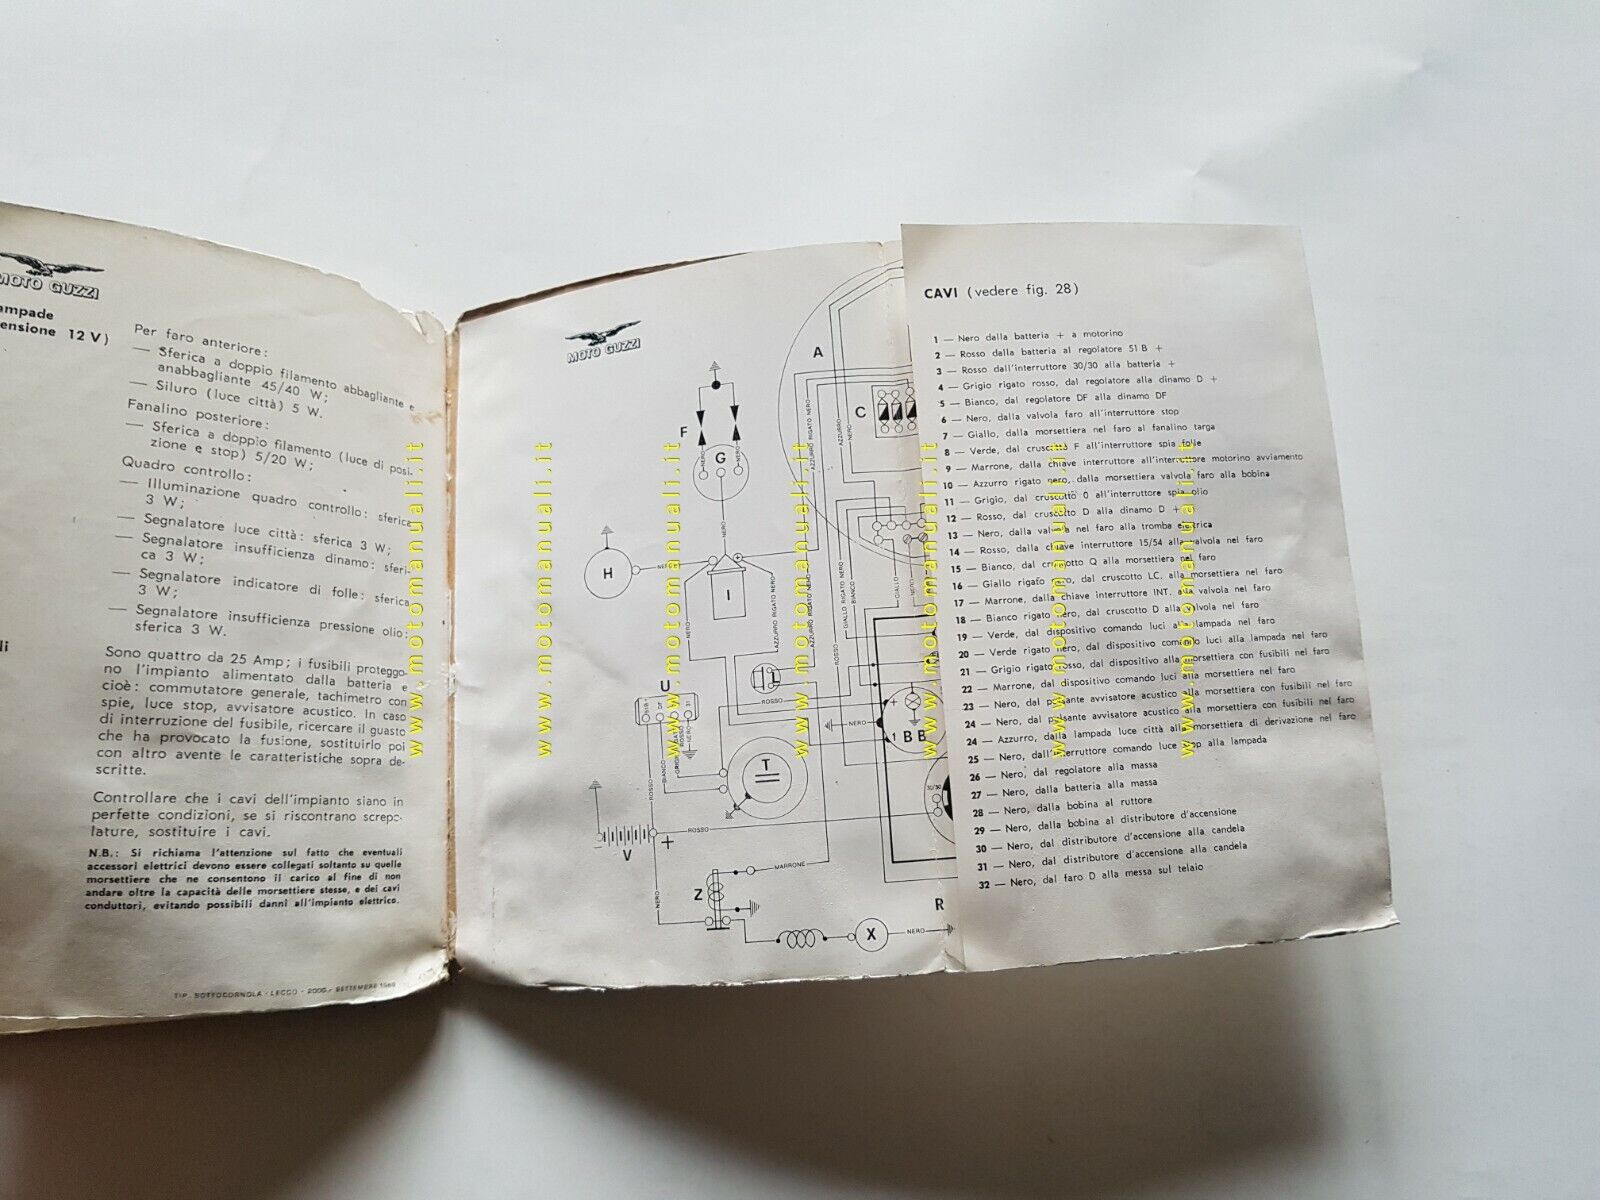 MOTO GUZZI
ampade
ensione 12 V)
Per faro anteriore:
— Sferica a doppio filamento abbagliante e
anabbagliante 45/40 W;
— Siluro (luce città) 5 W.
Fanalino posteriore:
— Sferica a doppio filamento (luce di posi-
zione e stop) 5/20 W;
Quadro controllo:
— Illuminazione quadro controllo: sferica
3 W;
— Segnalatore luce città: sferica 3 W;
— Segnalatore insufficienza dinamo: sferi-
ca 3 W;
— Segnalatore indicatore di folle: sferica
3 W;
— Segnalatore insufficienza pressione olio:
sferica 3 W.
li
Sono quattro da 25 Amp; i fusibili proteggo-
no l'impianto alimentato dalla batteria e
cioè: commutatore generale, tachimetro con
spie, luce stop, avvisatore acustico. In caso
di interruzione del fusibile, ricercare il guasto
che ha provocato la fusione, sostituirlo poi
con altro avente le caratteristiche sopra de-
scritte.
Controllare che i cavi dell'impianto siano in
perfette condizioni, se si riscontrano screpo-
lature, sostituire i cavi.
N.B.: Si richiama l'attenzione sul fatto che eventuali
accessori elettrici devono essere collegati soltanto su quelle
morsettiere che ne consentono il carico al fine di non
andare oltre la capacità delle morsettiere stesse, e dei cavi
conduttori, evitando possibili danni all'impianto elettrico.
TIP. SOTTOCORNOLA - LECCO - 2000 - SETTEMBRE 1968
MOTO GUZZI
A
C
F
G
NERO
NERO
NERO
H
I
NERO
AZZURRO RIGATO NERO
AZZURRO
NERO
GIALLO RIGATO NERO
BIANCO
GIALLO
NERO
ROSSO
AZZURRO RIGATO NERO
L
U
51B+
DF
31
ROSSO
NERO
BB
1
T
BIANCO
ROSSO
NERO
30/30
V
+
ROSSO
MARRONE
Z
NERO
X
NERO
R
CAVI (vedere fig. 28)
1 — Nero dalla batteria + a motorino
2 — Rosso dalla batteria al regolatore 51 B +
3 — Rosso dall'interruttore 30/30 alla batteria +
4 — Grigio rigato rosso, dal regolatore alla dinamo D +
5 — Bianco, dal regolatore DF alla dinamo DF
6 — Nero, dalla valvola faro all'interruttore stop
7 — Giallo, dalla morsettiera nel faro al fanalino targa
8 — Verde, dal cruscotto F all'interruttore spia folle
9 — Marrone, dalla chiave interruttore all'interruttore motorino avviamento
10 — Azzurro rigato nero, dalla morsettiera valvola faro alla bobina
11 — Grigio, dal cruscotto O all'interruttore spia olio
12 — Rosso, dal cruscotto D alla dinamo D +
13 — Nero, dalla valvola nel faro alla tromba elettrica
14 — Rosso, dalla chiave interruttore 15/54 alla valvola nel faro
15 — Bianco, dal cruscotto Q alla morsettiera nel faro
16 — Giallo rigato nero, dal cruscotto LC. alla morsettiera nel faro
17 — Marrone, dalla chiave interruttore INT. alla valvola nel faro
18 — Bianco rigato nero, dal cruscotto D alla valvola nel faro
19 — Verde, dal dispositivo comando luci alla lampada nel faro
20 — Verde rigato nero, dal dispositivo comando luci alla lampada nel faro
21 — Grigio rigato rosso, dal dispositivo alla morsettiera con fusibili nel faro
22 — Marrone, dal dispositivo comando luci alla morsettiera nel faro
23 — Nero, dal pulsante avvisatore acustico alla morsettiera con fusibili nel faro
24 — Nero, dal pulsante avvisatore acustico alla morsettiera con fusibili nel faro
24 — Azzurro, dalla lampada luce città alla morsettiera di derivazione nel faro
25 — Nero, dall'interruttore comando luce stop alla lampada
26 — Nero, dal regolatore alla massa
27 — Nero, dalla batteria alla massa
28 — Nero, dalla bobina al ruttore
29 — Nero, dalla bobina al distributore d'accensione
30 — Nero, dal distributore d'accensione alla candela
31 — Nero, dal distributore d'accensione alla candela
32 — Nero, dal faro D alla messa sul telaio
www.motomanuali.it
www.motomanuali.it
www.motomanuali.it
www.motomanuali.it
www.motomanuali.it
www.motomanuali.it
www.motomanuali.it